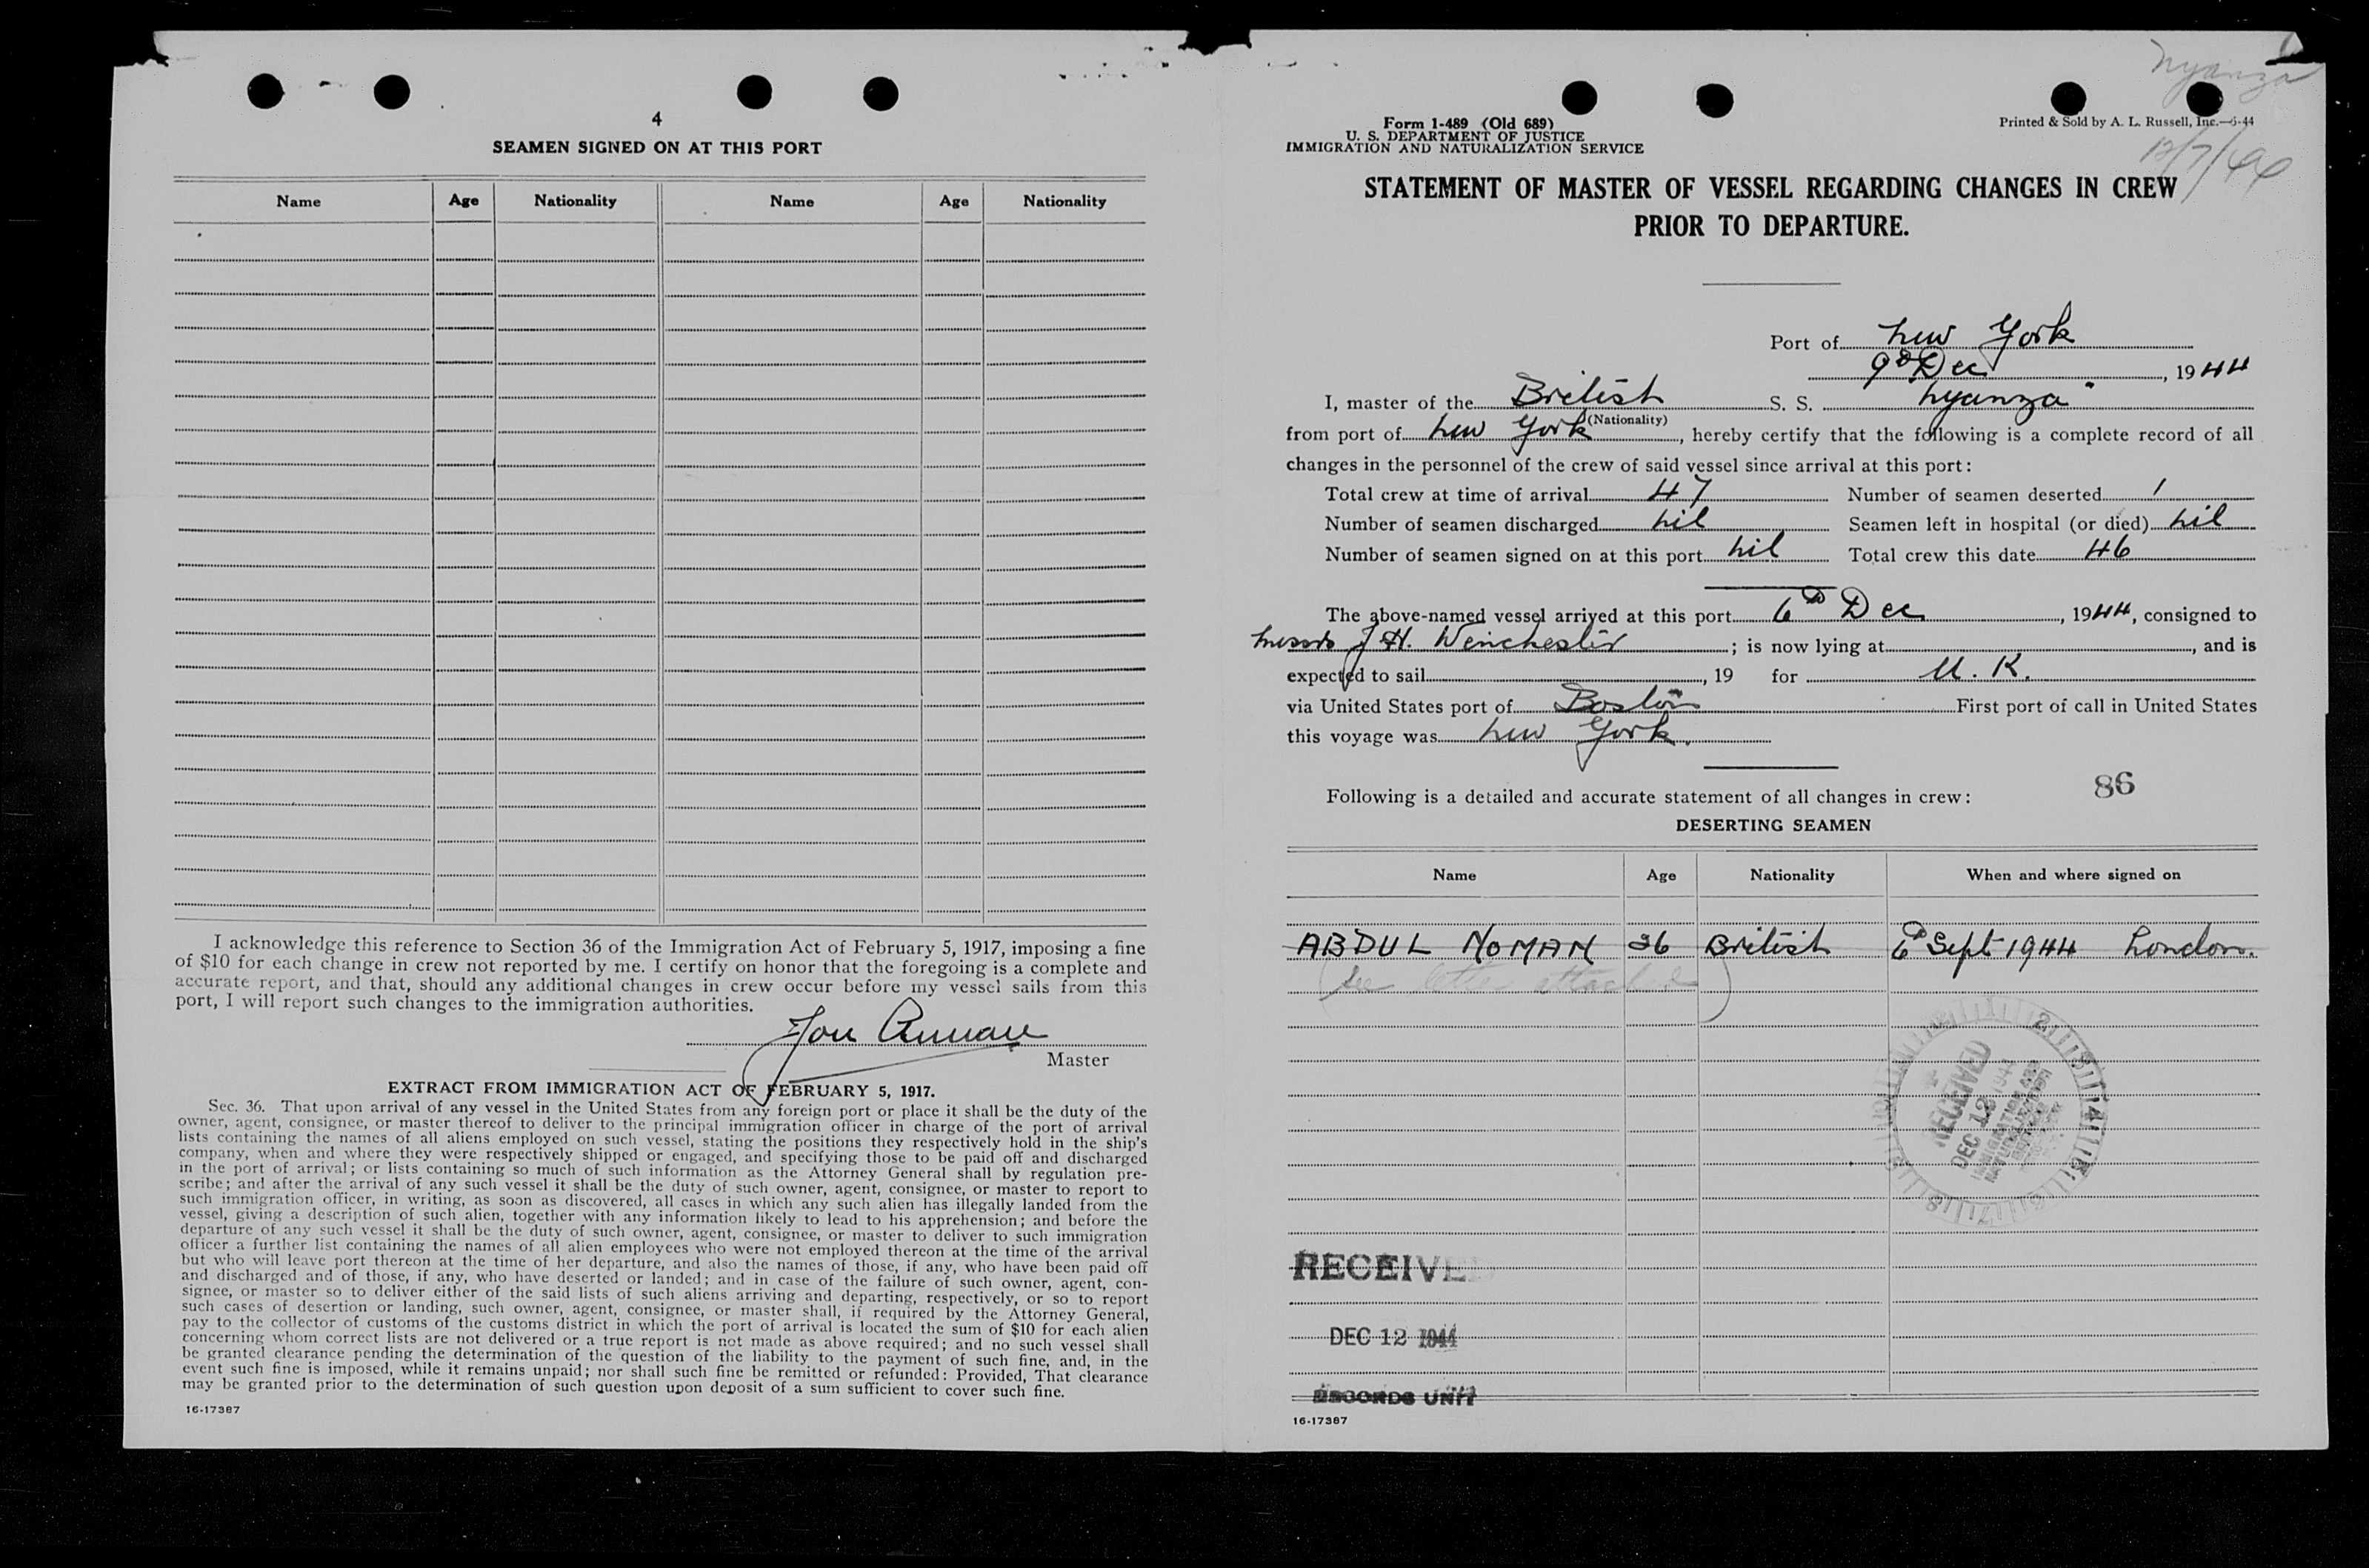 4
SEAMEN SIGNED ON AT THIS PORT
Name Age Nationality Name Age Nationality
I acknowledge this reference to Section 36 of the Immigration Act of February 5, 1917, imposing a fine
of $10 for each change in crew not reported by me. I certify on honor that the foregoing is a complete and
accurate report, and that, should any additional changes in crew occur before my vessel sails from this
port, I will report such changes to the immigration authorities.
Master
EXTRACT FROM IMMIGRATION ACT OF FEBRUARY 5, 1917.
Sec. 36. That upon arrival of any vessel in the United States from any foreign port or place it shall be the duty of the
owner, agent, consignee, or master thereof to deliver to the principal immigration officer in charge of the port of arrival
lists containing the names of all aliens employed on such vessel, stating the positions they respectively hold in the ship's
company, when and where they were respectively shipped or engaged, and specifying those to be paid off and discharged
in the port of arrival; or lists containing so much of such information as the Attorney General shall by regulation pre-
scribe; and after the arrival of any such vessel it shall be the duty of such owner, agent, consignee, or master to report to
such immigration officer, in writing, as soon as discovered, all cases in which any such alien has illegally landed from the
vessel, giving a description of such alien, together with any information likely to lead to his apprehension; and before the
departure of any such vessel it shall be the duty of such owner, agent, consignee, or master to deliver to such immigration
officer a further list containing the names of all alien employees who were not employed thereon at the time of the arrival
but who will leave port thereon at the time of her departure, and also the names of those, if any, who have been paid off
and discharged and of those, if any, who have deserted or landed; and in case of the failure of such owner, agent, con-
signee, or master so to deliver either of the said lists of such aliens arriving and departing, respectively, or so to report
such cases of desertion or landing, such owner, agent, consignee, or master shall, if required by the Attorney General,
pay to the collector of customs of the customs district in which the port of arrival is located the sum of $10 for each alien
concerning whom correct lists are not delivered or a true report is not made as above required; and no such vessel shall
be granted clearance pending the determination of the question of the liability to the payment of such fine, and, in the
event such fine is imposed, while it remains unpaid; nor shall such fine be remitted or refunded: Provided, That clearance
may be granted prior to the determination of such question upon deposit of a sum sufficient to cover such fine.
16-17387
Nyanza
12/7/44
Form 1-489 (Old 689)
U. S. DEPARTMENT OF JUSTICE
IMMIGRATION AND NATURALIZATION SERVICE
Printed & Sold by A. L. Russell, Inc.—6-44
STATEMENT OF MASTER OF VESSEL REGARDING CHANGES IN CREW
PRIOR TO DEPARTURE.
Port of New York
9th Dec, 1944
I, master of the British S. S. Nyanza
(Nationality)
from port of New York, hereby certify that the following is a complete record of all
changes in the personnel of the crew of said vessel since arrival at this port:
Total crew at time of arrival 47 Number of seamen deserted 1
Number of seamen discharged Nil Seamen left in hospital (or died) Nil
Number of seamen signed on at this port Nil Total crew this date 46
The above-named vessel arrived at this port 6th Dec, 1944, consigned to
Messrs J. H. Winchester; is now lying at, and is
expected to sail, 19 for U. K.
via United States port of Boston First port of call in United States
this voyage was New York.
86
Following is a detailed and accurate statement of all changes in crew:
DESERTING SEAMEN
Name Age Nationality When and where signed on
ABDUL NOMAN 36 British 6th Sept 1944 London.
See letter attached
RECEIVED
DEC 12 1944
IMMIGRATION AND
NATURALIZATION
RECEIVED
DEC 12 1944
RECORDS UNIT
16-17387